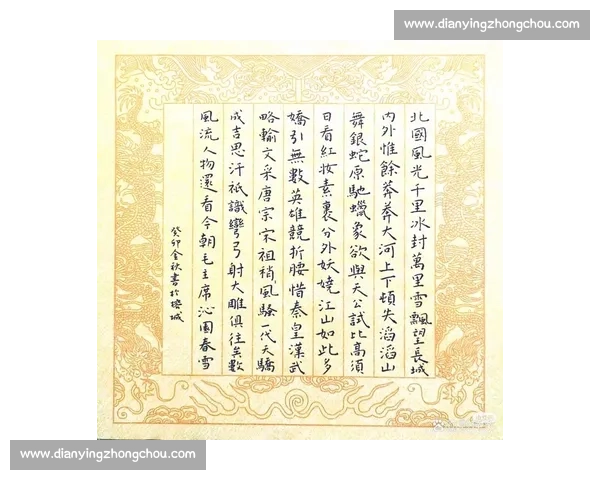 www.dianyingzhongchou.com
北國風光千里冰封萬里雪飄望長城
内外惟餘莽莽大河上下頓失滔滔山
舞銀蛇原馳蠟象欲與天公試比高須
日看紅妆素裹分外妖嬈江山如此多
嬌引無數英雄競折腰惜秦皇漢武
略輸文采唐宗宋祖稍風騷一代天驕
成吉思汗祇識彎弓射大雕俱往矣數
風流人物還看今朝毛主席沁園春雪
癸卯金秋書於城
www.dianyingzhongchou.com